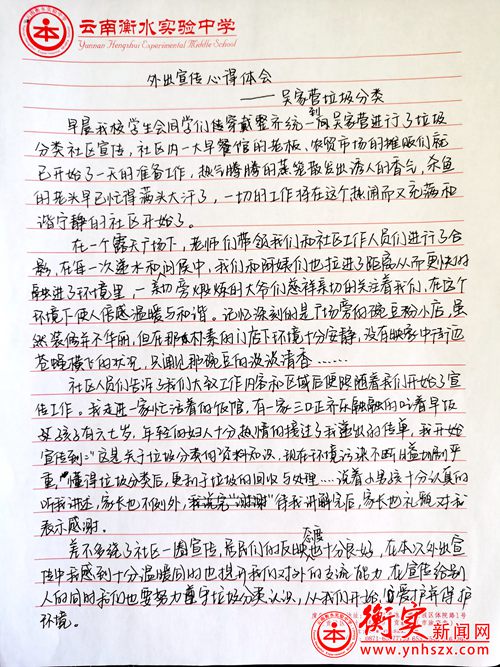 云南衡水实验中学
Yunnan Hengshui Experimental Middle School
外出宣传心得体会
——吴家营垃圾分类
早晨我校学生会同学们传穿戴整齐统一到吴家营进行了垃圾
分类社区宣传,社区内一大早餐馆的老板、农贸市场的摊贩们就
已开始了一天的准备工作,热气腾腾的蒸笼散发出诱人的香气,杀鱼
的老头早已忙得满头大汗了,一切的工作将在这个热闹而又充满和
谐宁静的社区开始了。
在一个露天广场下,老师们带领我们和社区工作人员们进行了合
影,在每一次递水和闲侃中,我们和阿姨们也拉进了距离从而更快的
融进了环境里,一旁锻炼的大爷们慈祥亲切的关注着我们,在这个
环境下使人倍感温暖与和谐。记忆深刻的是广场旁的豌豆粉小店,虽
然装修年不华丽,但在那朴素的门店下环境十分安静,没有映象中所述
苍蝇横飞的状况,只闻见那豌豆的淡淡清香……
社区人员们告诉了我们大致工作内容和区域后便陪随着我们开始了宣
传工作。我走进一家忙活着的饭馆,有一家三口正齐乐融融的吃着早饭
孩子有六七岁,年轻的妇人十分热情的接过了我递出的传单,我开始
宣传到:"这是关于垃圾分类的资料知识,现在环境污染不断日益加剧严
重,懂得垃圾分类后,更利于垃圾的回收与处理……说着小男孩十分认真的
听我讲述,家长也不例外,待我讲解完后,家长也礼貌对我
表示感谢。
差不多绕了社区一圈宣传,居民们的反映态度也十分良好,在本次外出宣
传中我感到十分温暖同时也提升我们对外的交流能力,在宣传给别
人的同时我们也要努力遵守垃圾分类认识,从我们开始,爱护并保护
环境。
衡实新闻网
www.ynhszx.com